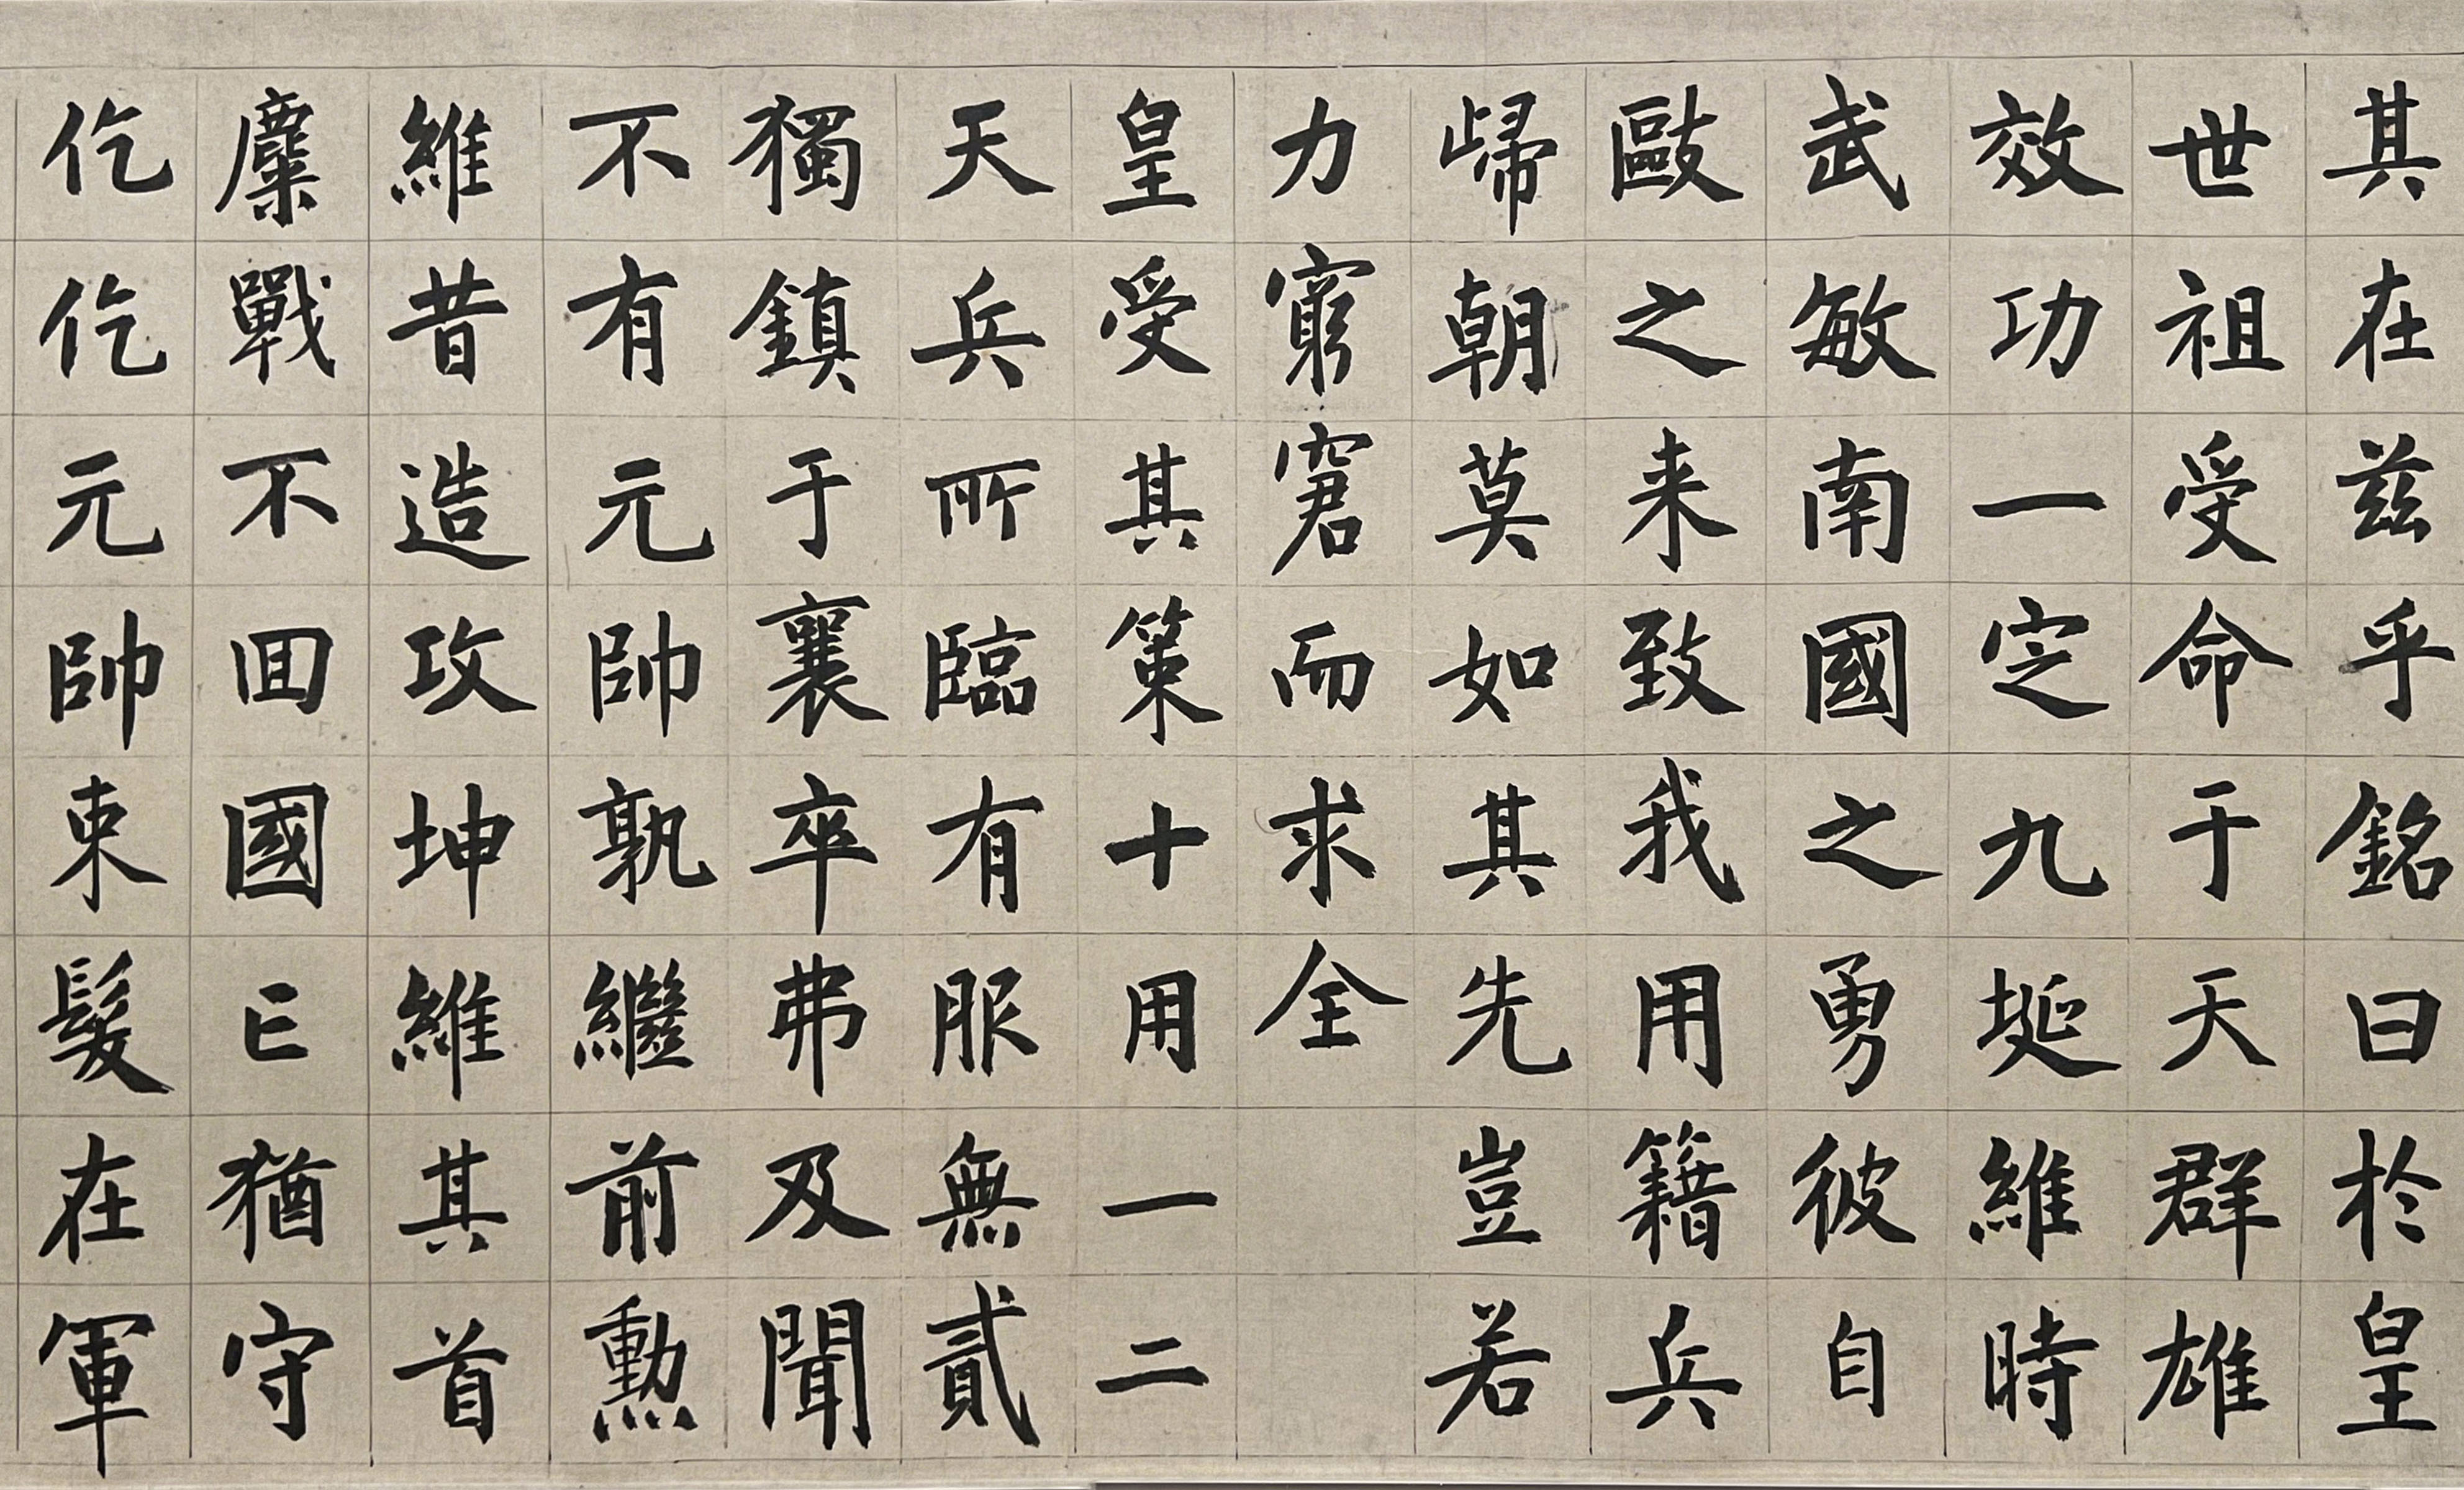 其在茲乎銘曰於皇
世祖受命于天群雄
效功一定九埏維時
武敏南國之勇彼自
敺之来致我用籍兵
歸朝莫如其先豈若
力窮窘而求全
皇受其策十用一二
天兵所臨有服無貳
獨鎮于襄卒弗及聞
不有元帥孰繼前勲
維昔造攻坤維其首
麋戰不回國亡猶守
仡仡元帥束髮在軍